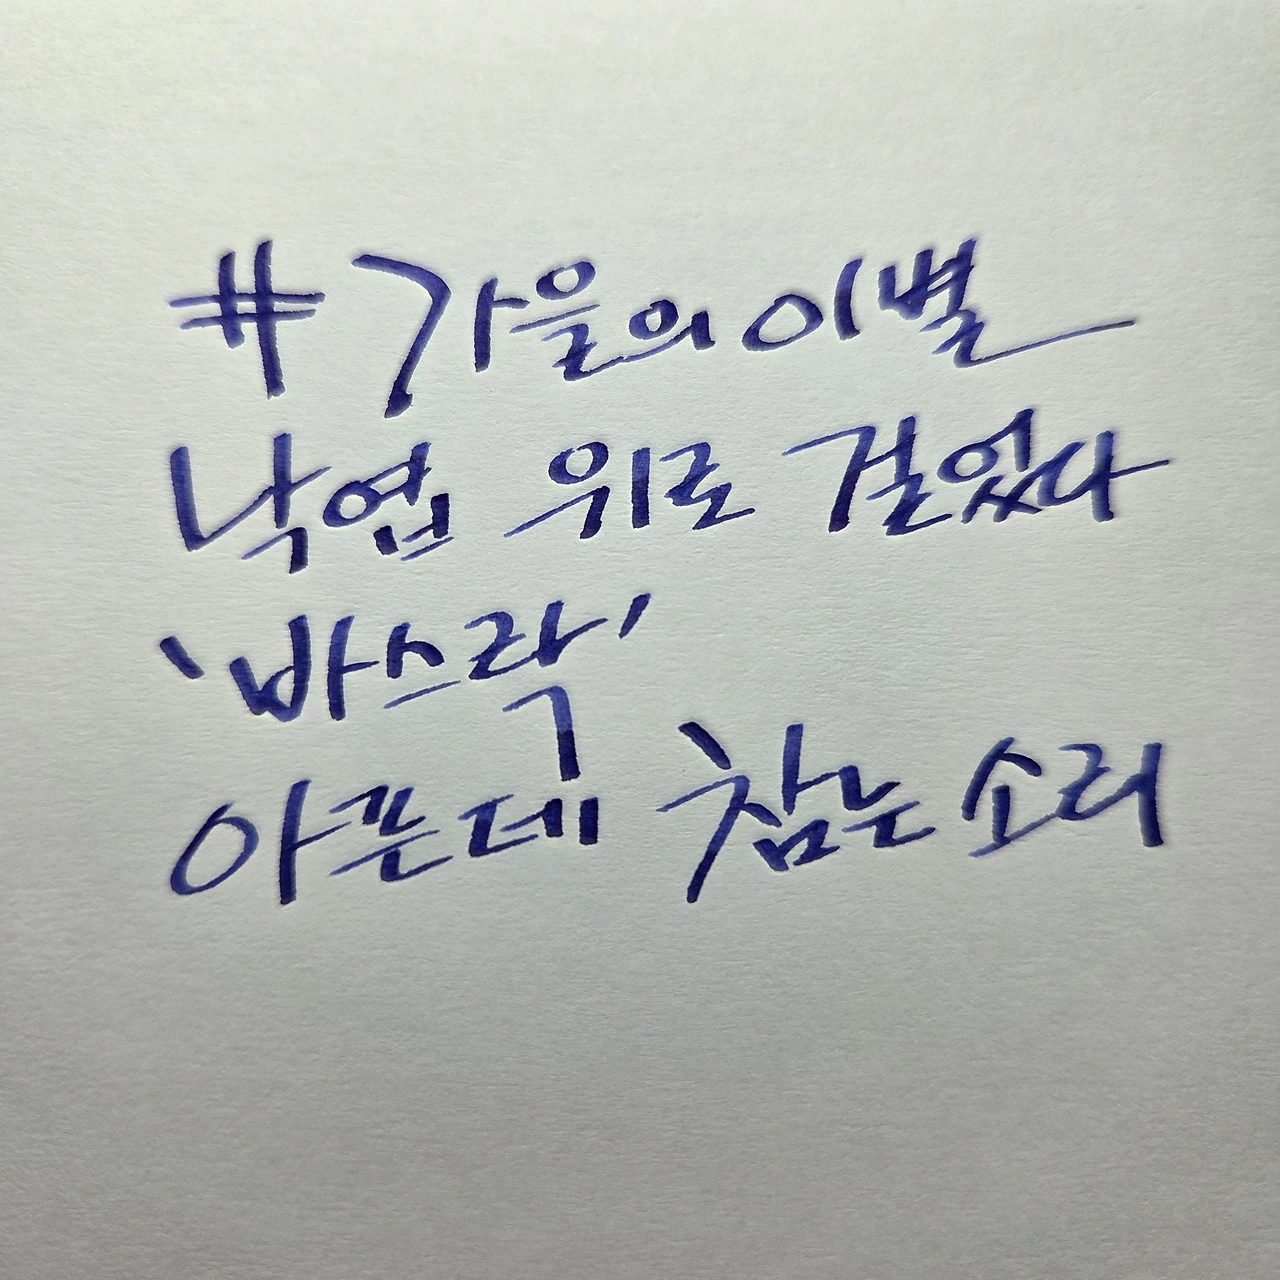 # 가을의 이별
낙엽 위로 걸었다
'바스락'
아픈데 참는 소리